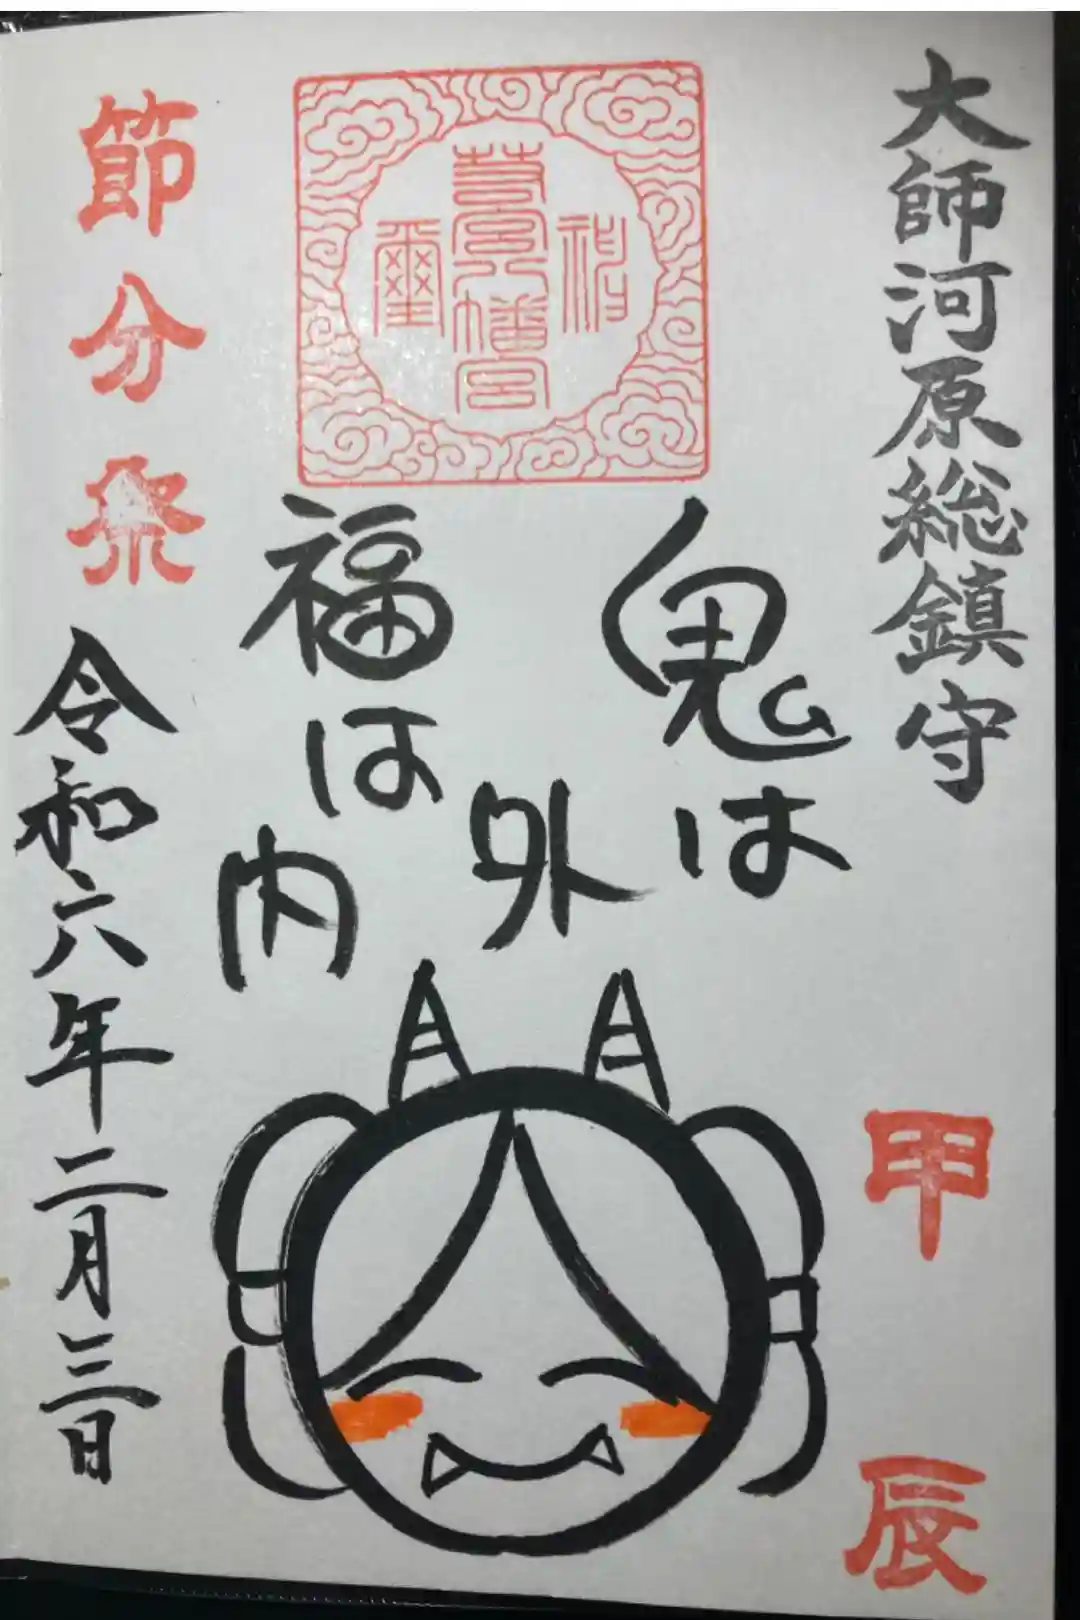 大師河原総鎮守
甲辰
鬼は
外
福は
内
若宮八幡宮
節分祭
令和六年二月三日